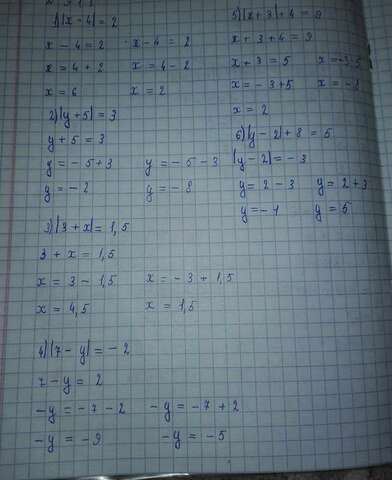 1) |x - 4| = 2
x - 4 = 2    x - 4 = 2
x = 4 + 2    x = 4 - 2
x = 6    x = 2
2) |y + 5| = 3
y + 5 = 3
y = - 5 + 3    y = - 5 - 3
y = - 2    y = - 8
3) |3 + x| = 1,5
3 + x = 1,5
x = 3 - 1,5    x = - 3 + 1,5
x = 4,5    x = 1,5
4) |7 - y| = - 2
7 - y = 2
-y = - 7 - 2    -y = - 7 + 2
-y = - 9    -y = - 5
5) |x + 3| + 4 = 9
x + 3 + 4 = 9
x + 3 = 5    x = -3-5
x = - 3 + 5    x = - 8
x = 2
6) |y - 2| + 8 = 5
|y - 2| = - 3
y = 2 - 3    y = 2 + 3
y = - 1    y = 5